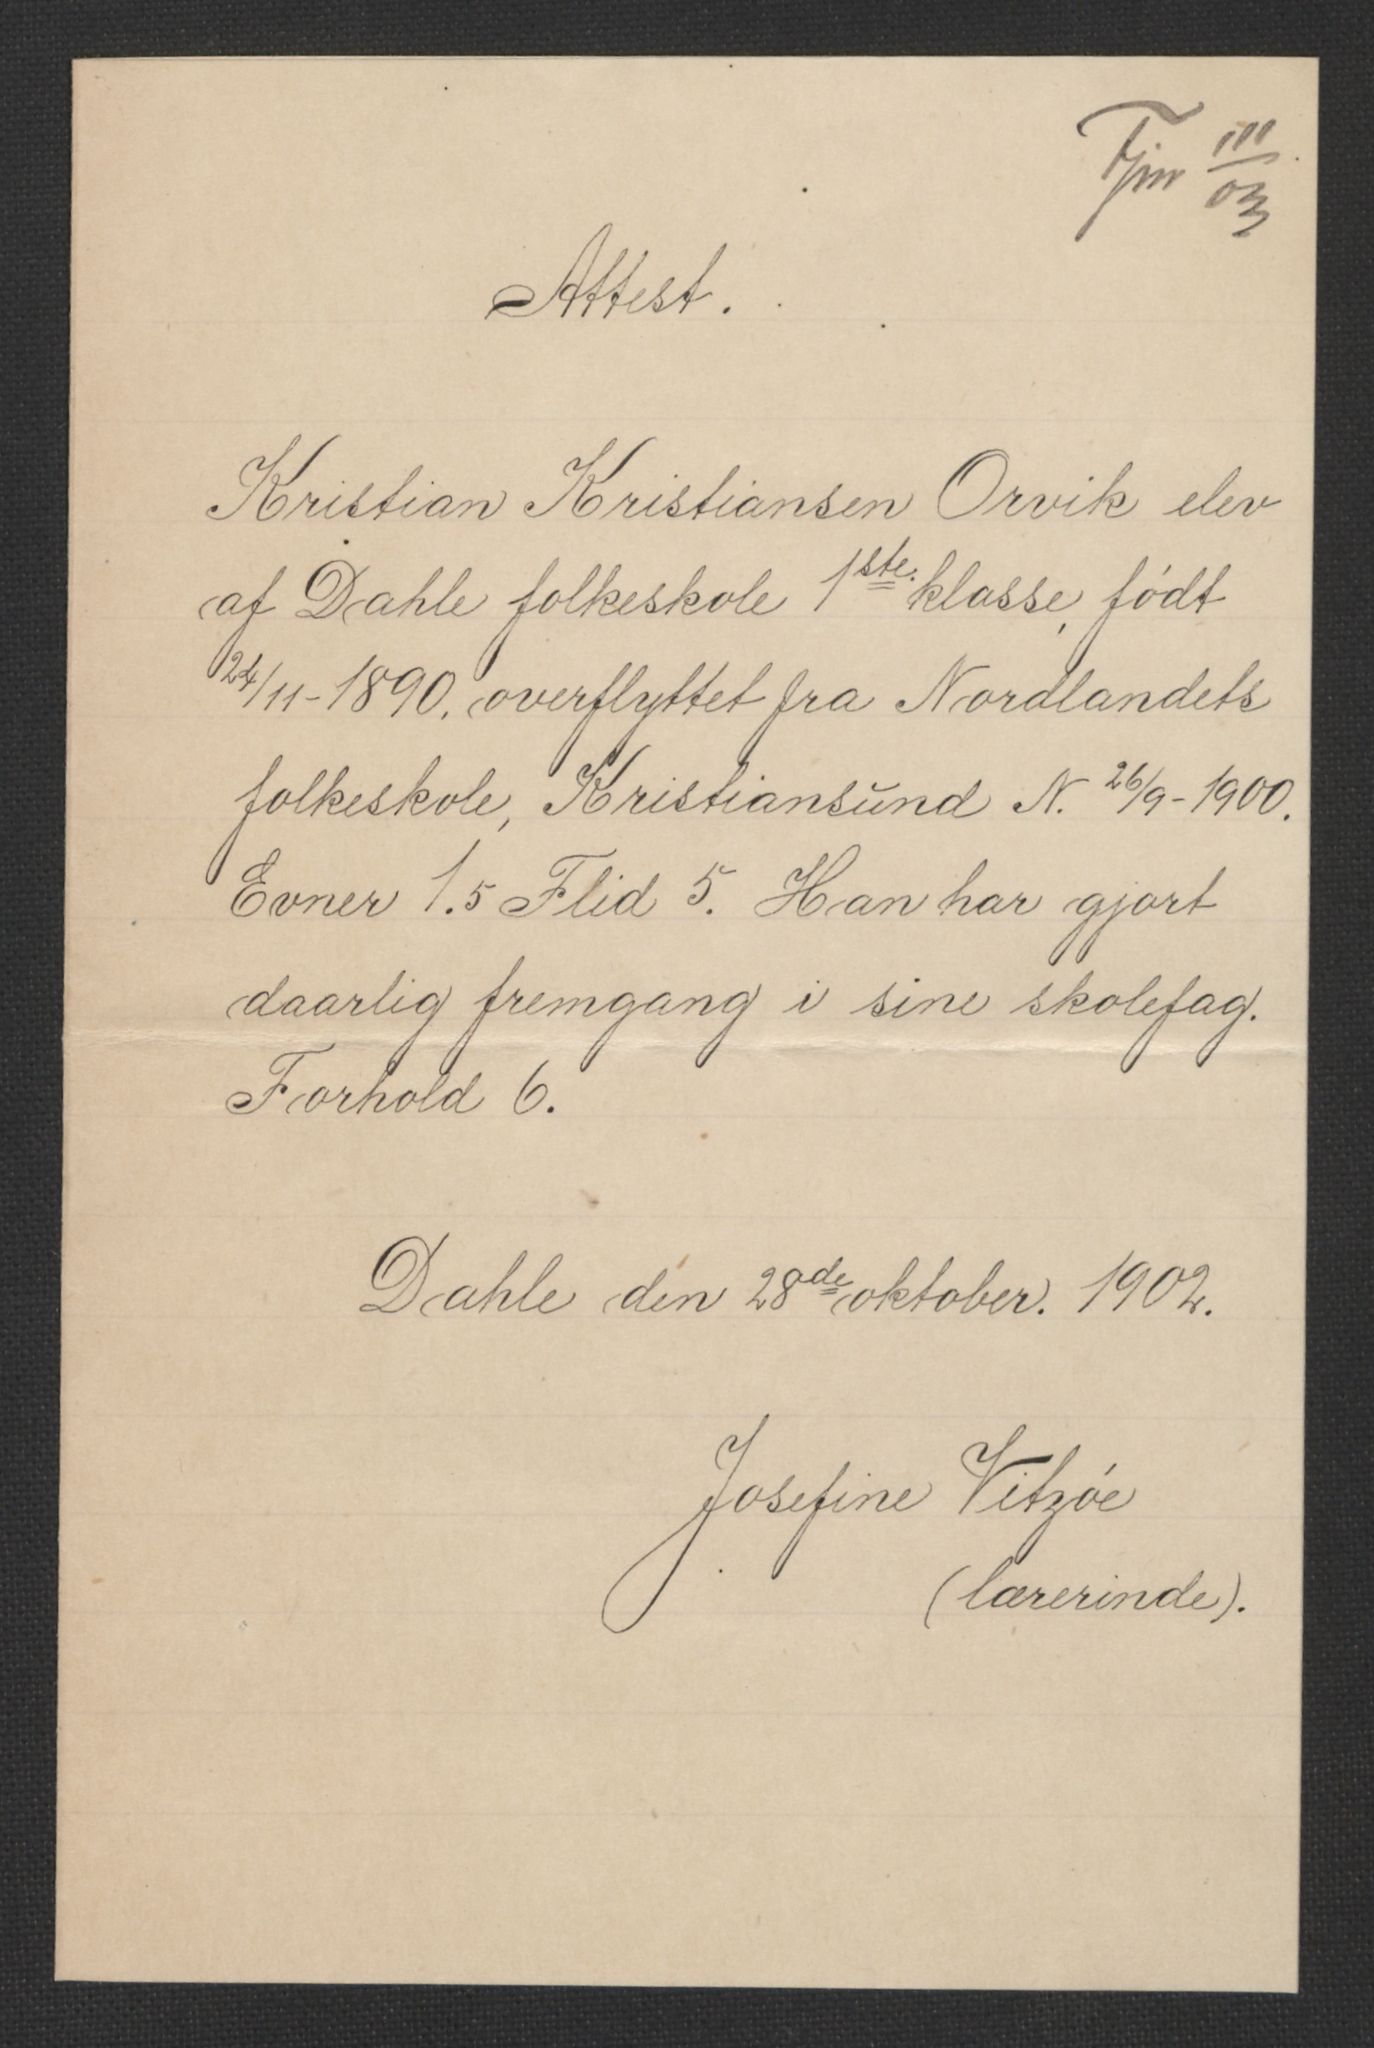 III
03
Attest.
Kristian Kristiansen Orvik elev
af Dahle folkeskole 1ste. klasse, født
24/11-1890. overflyttet fra Nordlandets
folkeskole, Kristiansund N. 26/9-1900.
Evner 1.5 Flid 5. Han har gjort
daarlig fremgang i sine skolefag.
Forhold 6.
Dahle den 28de oktober. 1902.
Josefine Vitzóe
(lærerinde).